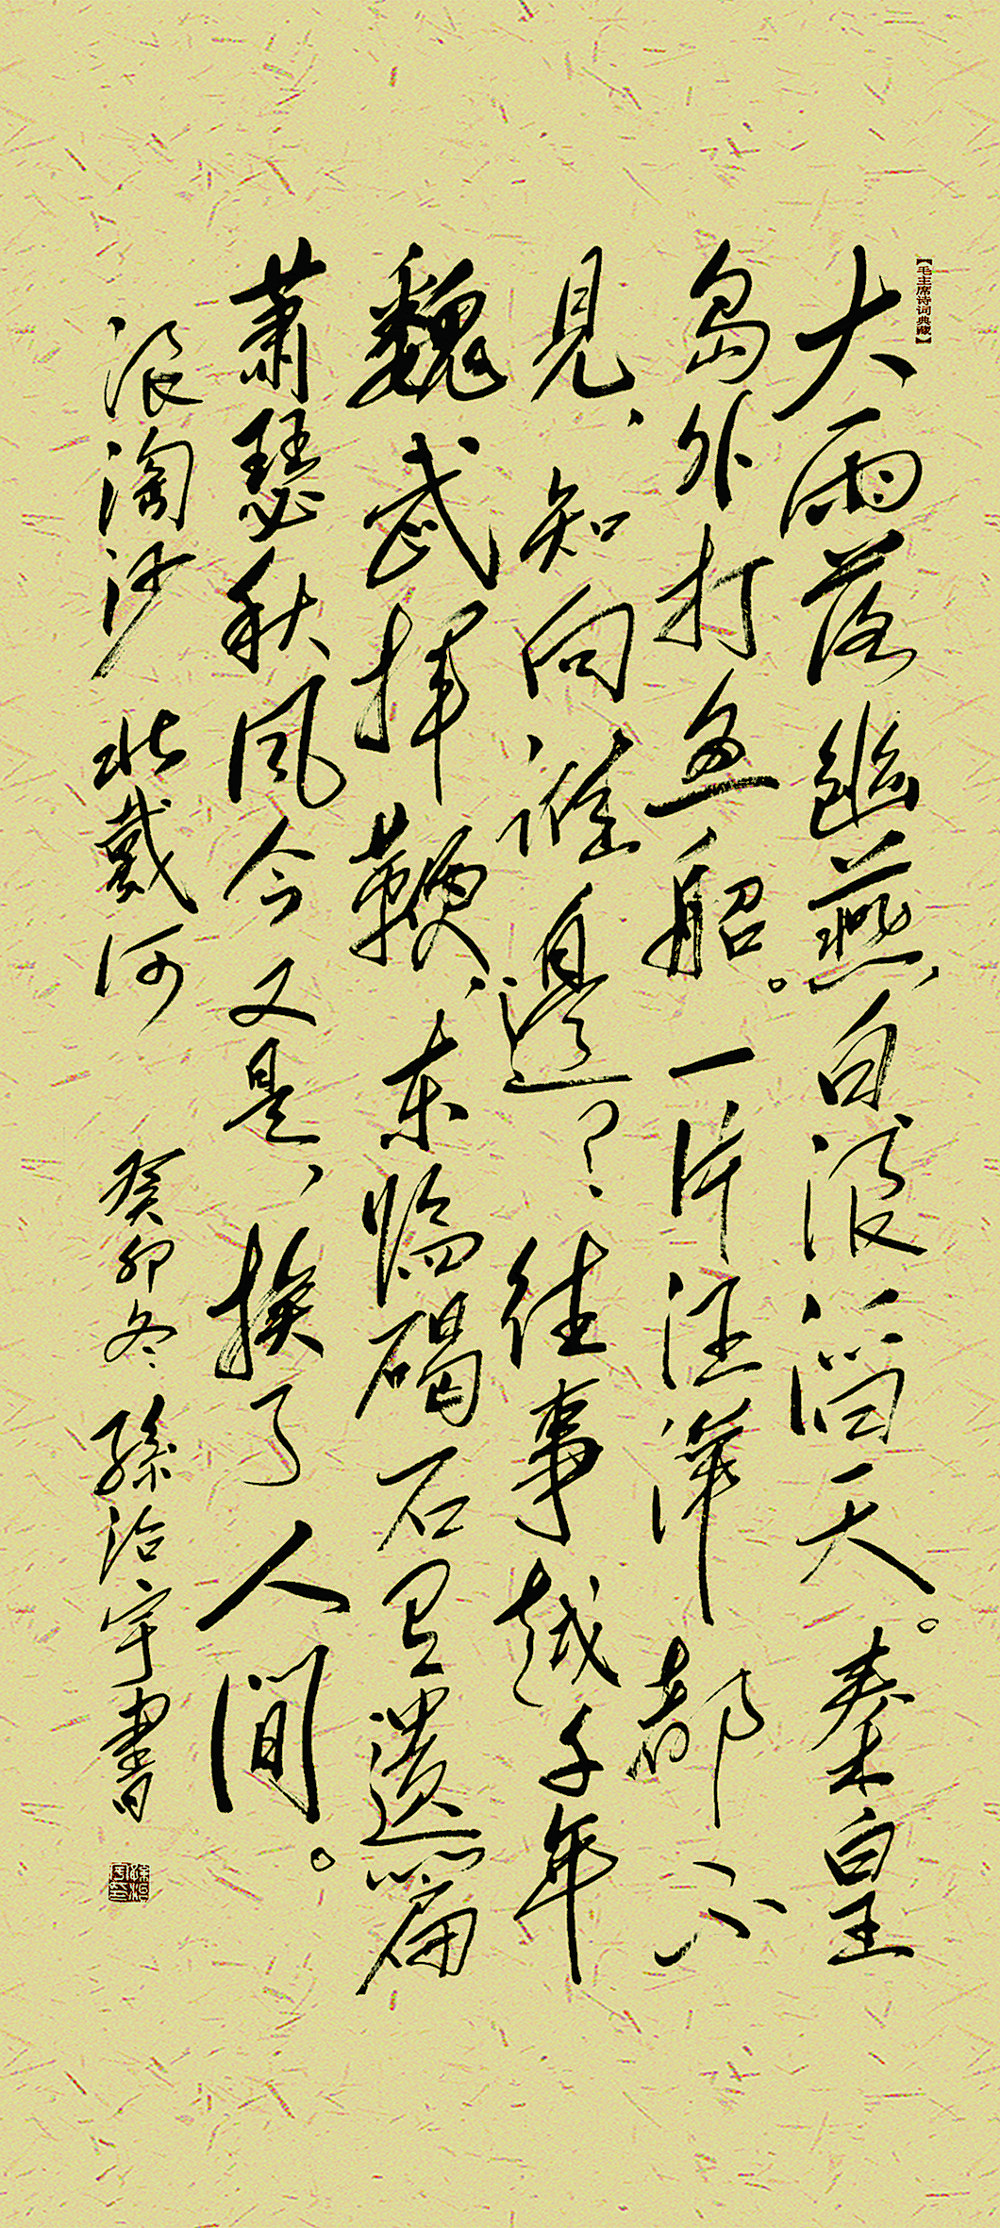 【毛主席诗词典藏】
大雨落幽燕、白浪滔天。秦皇
岛外打鱼船。一片汪洋都不
見、知向谁邊？往事越千年
魏武挥鞭、东临碣石有遗篇
萧瑟秋风今又是、换了人间。
浪淘沙 北戴河 癸卯冬 孫治宇書